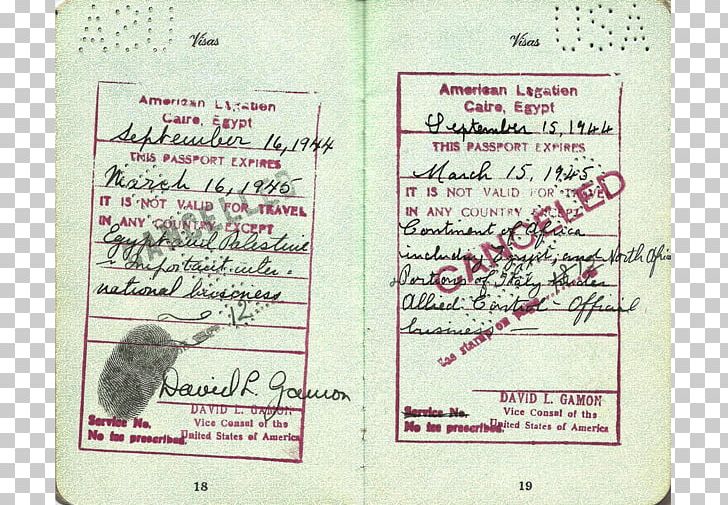 Visas
American Legation
Cairo, Egypt
September 16, 1944
THIS PASSPORT EXPIRES
March 16, 1945
IT IS NOT VALID FOR TRAVEL
IN ANY COUNTRY EXCEPT
Egypt and Palestine
- Important inter-
national business
CANCELLED
12
David L. Gamon
DAVID L. GAMON
Service No. Vice Consul of the
No fee prescribed. United States of America
18
Visas
USA
American Legation
Cairo, Egypt
September 15, 1944
THIS PASSPORT EXPIRES
March 15, 1945
IT IS NOT VALID FOR TRAVEL
IN ANY COUNTRY EXCEPT
Continent of Africa
including Egypt, and North Africa
Portions of Italy under
Allied Control - Official
business -
CANCELED
See stamp on
DAVID L. GAMON
Service No. Vice Consul of the
No fee prescribed. United States of America
19